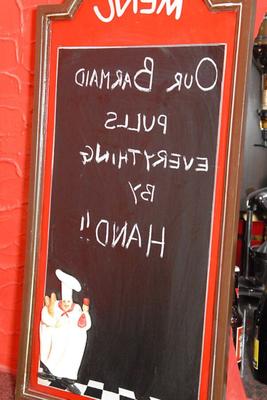 MENU
OUR BARMAID
PULLS
EVERYTHING
BY
HAND!!